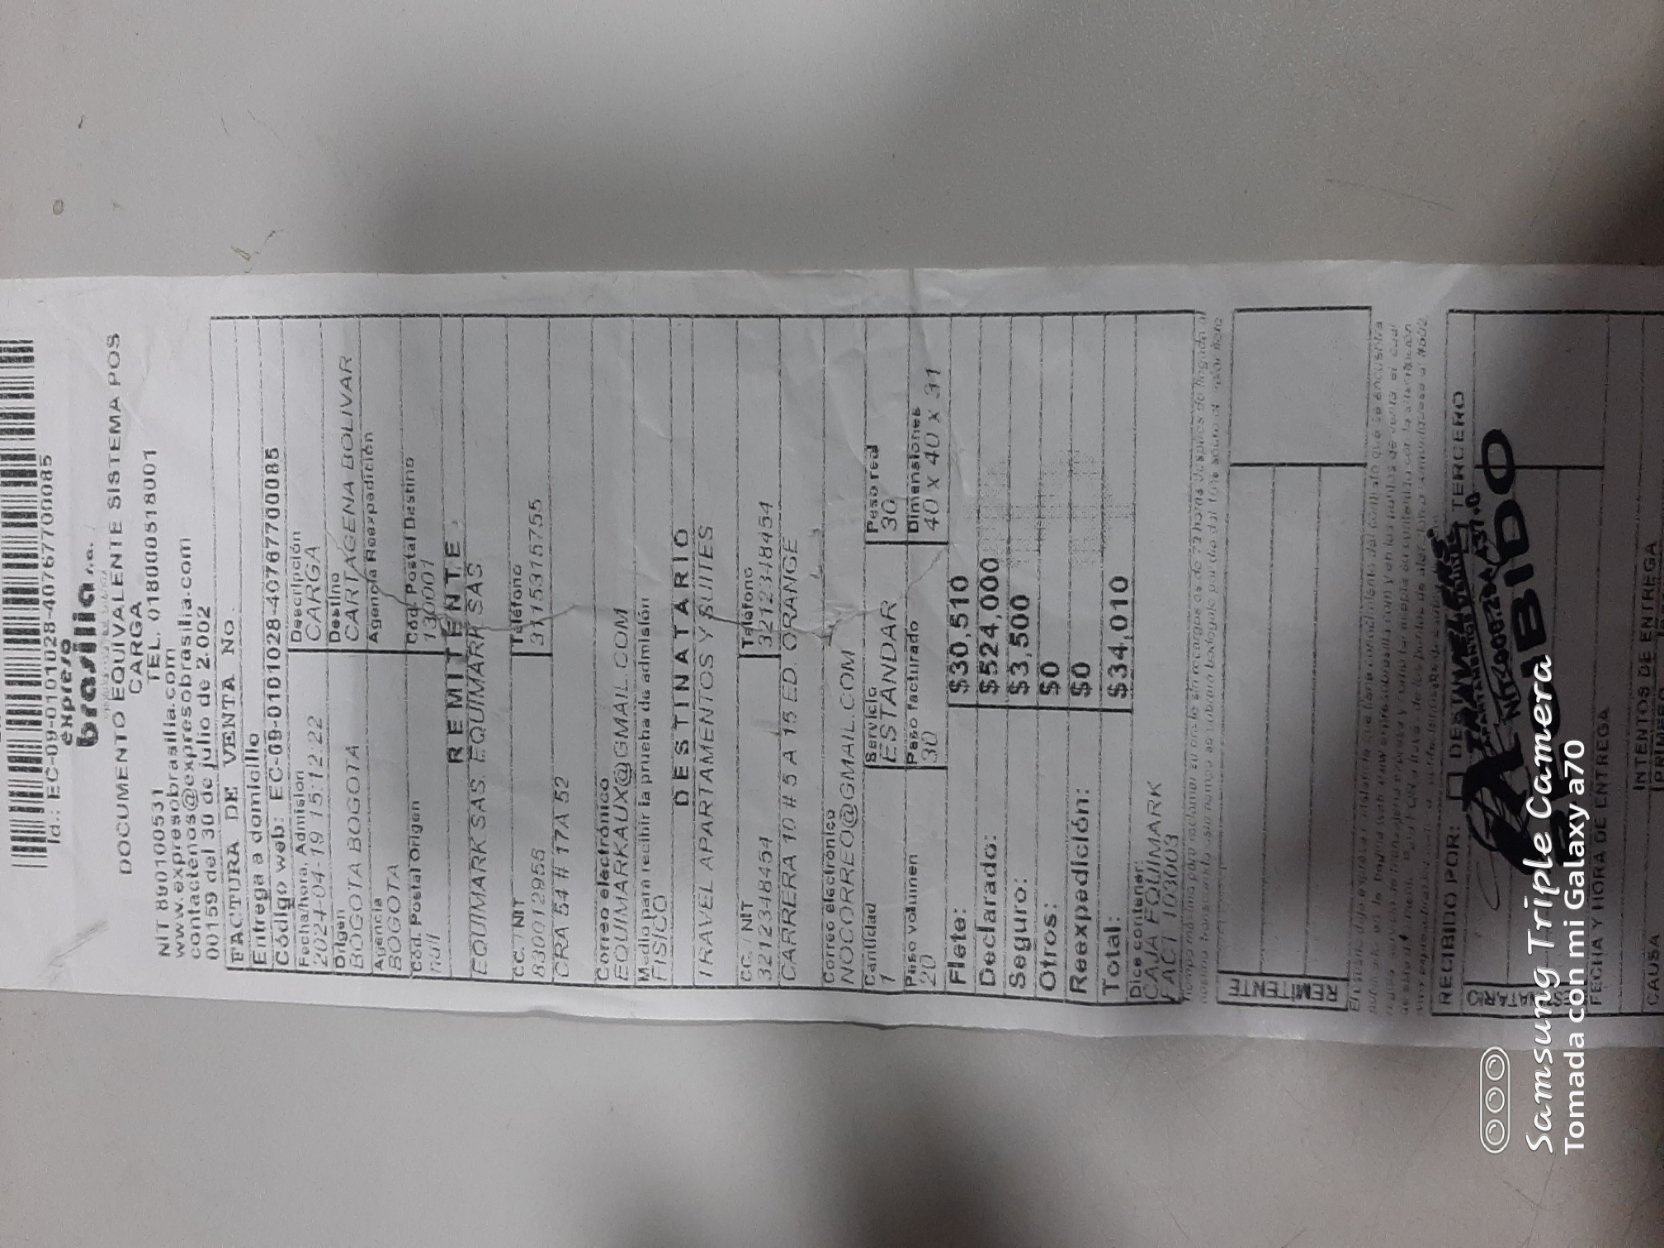 Id.: EC-09-0101028-4076770085
expreso
brasilia s.a.
DOCUMENTO EQUIVALENTE SISTEMA POS
CARGA
NIT 890100531 TEL. 018000518001
www.expresobrasilia.com
contactenos@expresobrasilia.com
00159 del 30 de julio de 2.002
FACTURA DE VENTA No.
Entrega a domicilio
Código web: EC-09-0101028-40767700085
Fecha/hora, Admisión Descripción
2024-04-19 15:12:22 CARGA
Origen Destino
BOGOTA BOGOTA CARTAGENA BOLIVAR
Agencia Agencia Reexpedición
BOGOTA
Cód. Postal Origen Cód. Postal Destino
null 130001
REMITENTE
EQUIMARK SAS. EQUIMARK SAS.
CC. / NIT Teléfono
830012955 3115315755
CRA 54 # 17A 52
Correo electrónico
EQUIMARKAUX@GMAIL.COM
Medio para recibir la prueba de admisión
FISICO
DESTINATARIO
TRAVEL APARTAMENTOS Y SUITES
CC. / NIT Teléfono
3212348454 3212348454
CARRERA 10 # 5 A 15 ED. ORANGE
Correo electrónico
NOCORREO@GMAIL.COM
Cantidad Servicio Peso real
1 ESTANDAR 30
Peso volumen Peso facturado Dimensiones
20 30 40 x 40 x 31
Flete: $30,510
Declarado: $524,000
Seguro: $3,500
Otros: $0
Reexpedición: $0
Total: $34,010
Dice contener:
CAJA EQUIMARK
FACT 103003
REMITENTE
RECIBIDO POR: DESTINATARIO TERCERO
RECIBIDO
FECHA Y HORA DE ENTREGA
INTENTOS DE ENTREGA
CAUSA PRIMERO
Samsung Triple Camera
Tomada con mi Galaxy a70